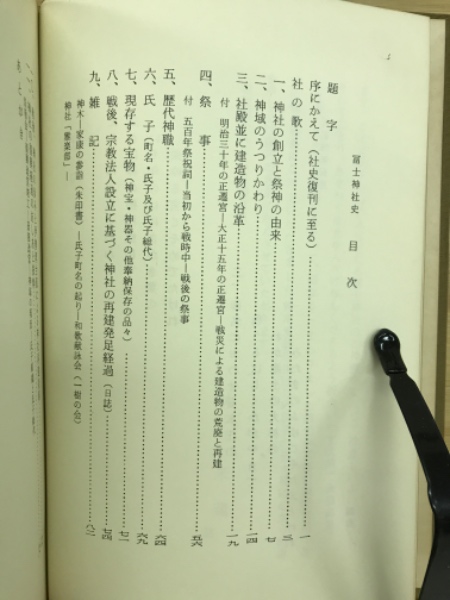 冨士神社史 目次
題字
序にかえて(社史復刊に至る)……一
社の歌……三
一、神社の創立と祭神の由来……七
二、神域のうつりかわり……一四
三、社殿並に建造物の沿革……一九
付 明治三十年の正遷宮―大正十五年の正遷宮―戦災による建造物の荒廃と再建
四、祭事……五六
付 五百年祭祝詞―当初から戦時中―戦後の祭事
五、歴代神職……六四
六、氏子(町名・氏子及び氏子総代)……六九
七、現存する宝物(神宝・神器その他奉納保存の品々)……七一
八、戦後、宗教法人設立に基づく神社の再建発足経過(日誌)……七四
九、雑記……八二
神木―家康の参詣(朱印書)―氏子町名の起り―和敬献詠会(一樹の会)